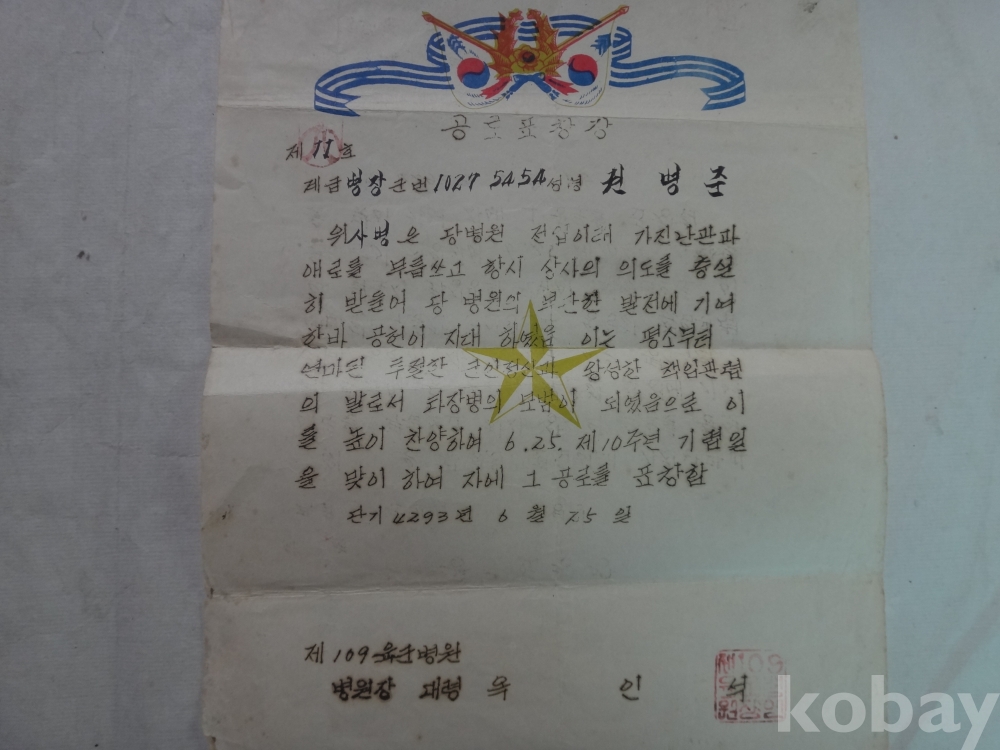 공로표창장
제 11 호
계급 병장 군번 1027 5454 성명 권 병 준
위 사병은 당병원 전입이래 가진난관과
애로를 부릅쓰고 항시 상사의 의도를 충실
히 받들어 당 병원의 부단한 발전에 기여
한바 공헌이 지대 하였음 이는 평소부터
연마된 투철한 군인정신과 왕성한 책임관렴
의 발로서 타장병의 모범이 되였음으로 이
를 높이 찬양하여 6.25. 제10주년 기렴일
을 맞이 하여 자에 그 공로를 표창함
단기 4293 년 6 월 25 일
제 109 육군병원
병원장 대령 옥 인 석
109
kobay